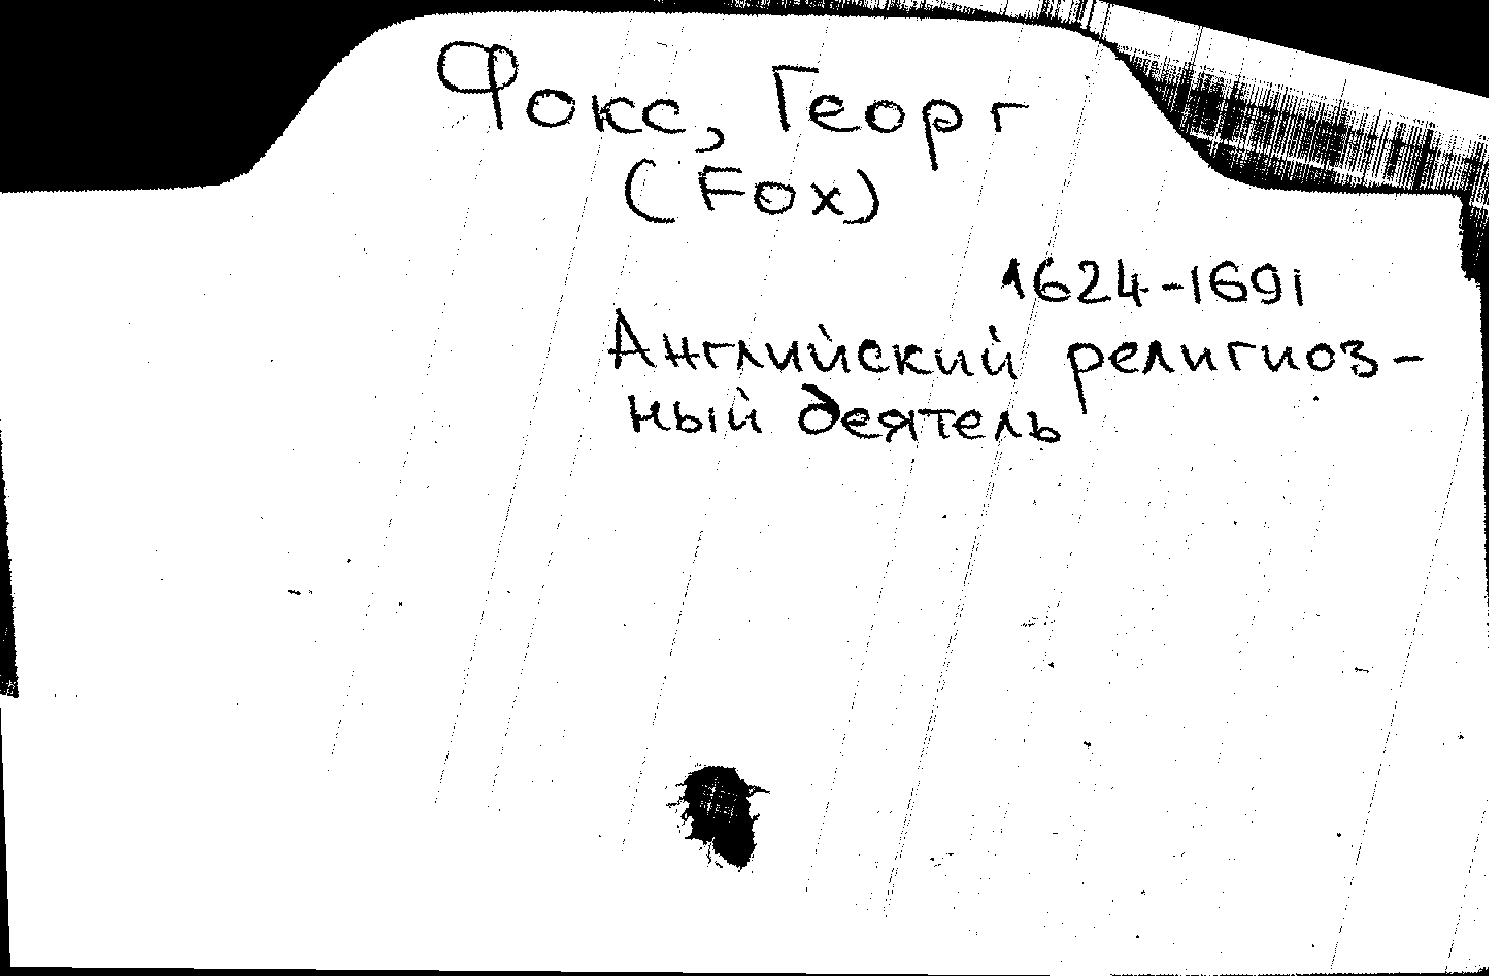 Фокс, Георг
(Fox)
1624-1691
Английский религиоз-
ный деятель